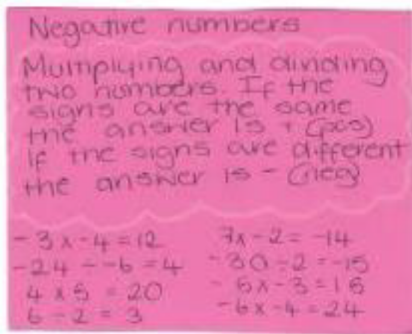 Negative numbers
Multiplying and dividing
two numbers. If the
signs are the same
the answer is + (pos)
If the signs are different
the answer is - (neg)
- 3 x -4 = 12
-24 ÷ -6 = 4
4 x 5 = 20
6 ÷ 2 = 3
7 x -2 = -14
-30 ÷ 2 = -15
- 5 x -3 = 15
-6 x -4 = 24